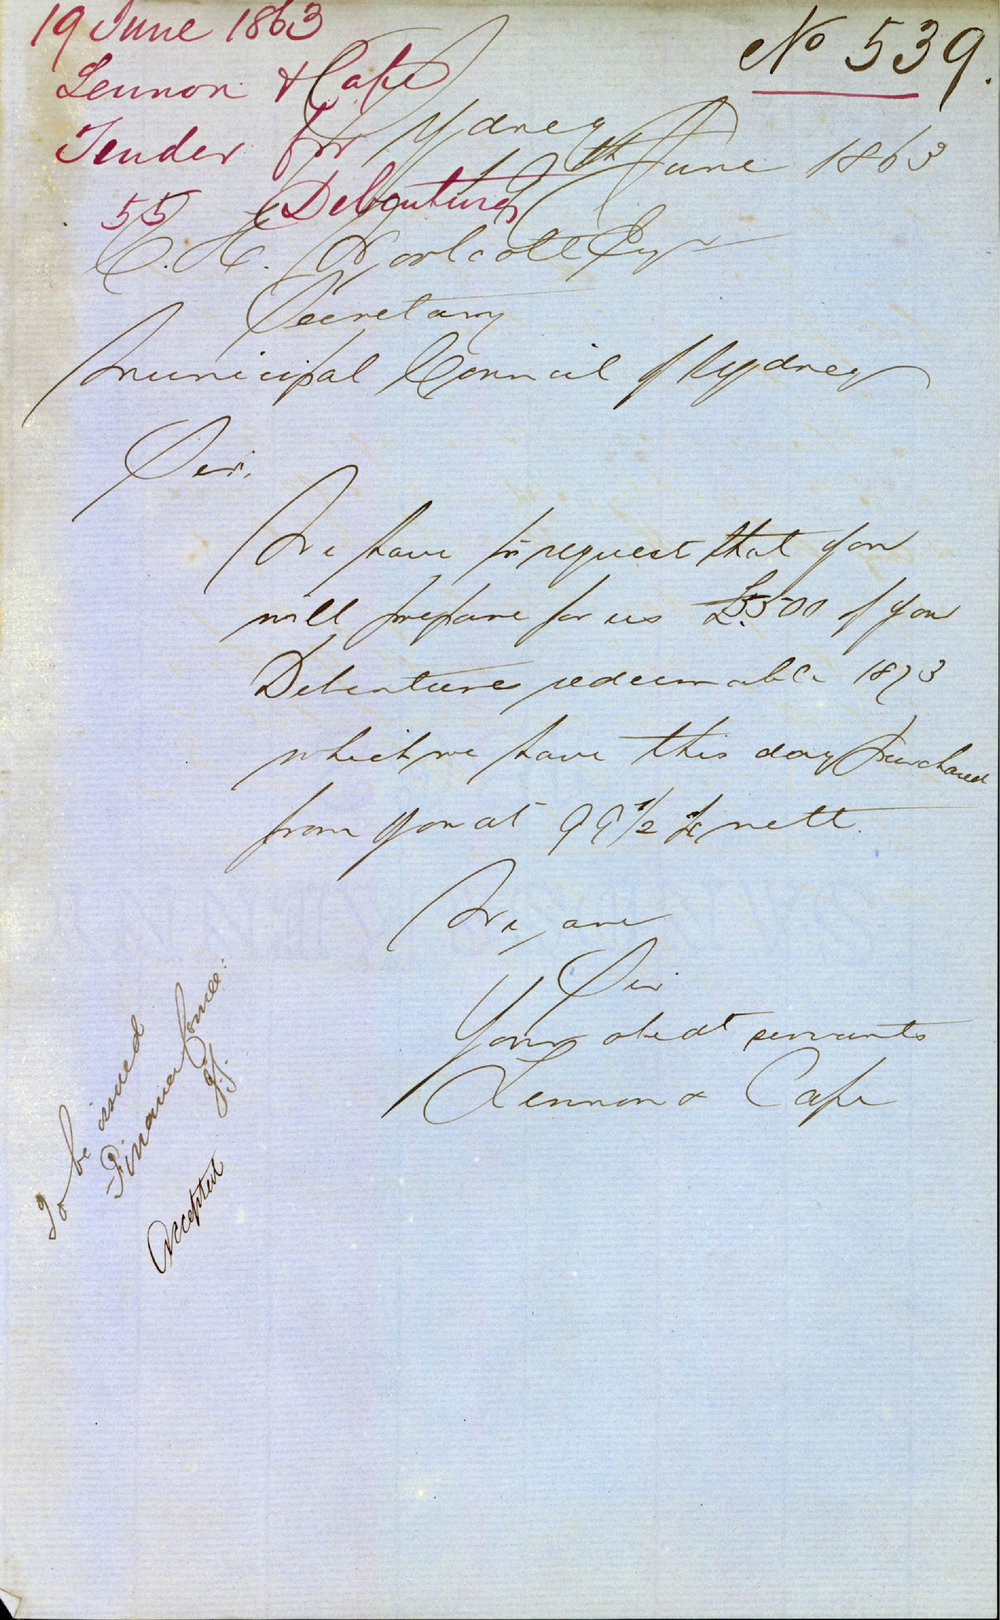 19 June 1863
Lennon & Cape
Tender for
55 Debentures
No 539.
Sydney
19th June 1863
C. H. Woolcott Esqr
Secretary
Municipal Council of Sydney
Sir,
We have to request that you
will prepare for us £5500 of your
Debentures redeemable 1873
which we have this day purchased
from you at 99 1/2 % nett.
We are
Sir
Your obedt servants
Lennon & Cape
To be issued
Finance Comee:
Accepted